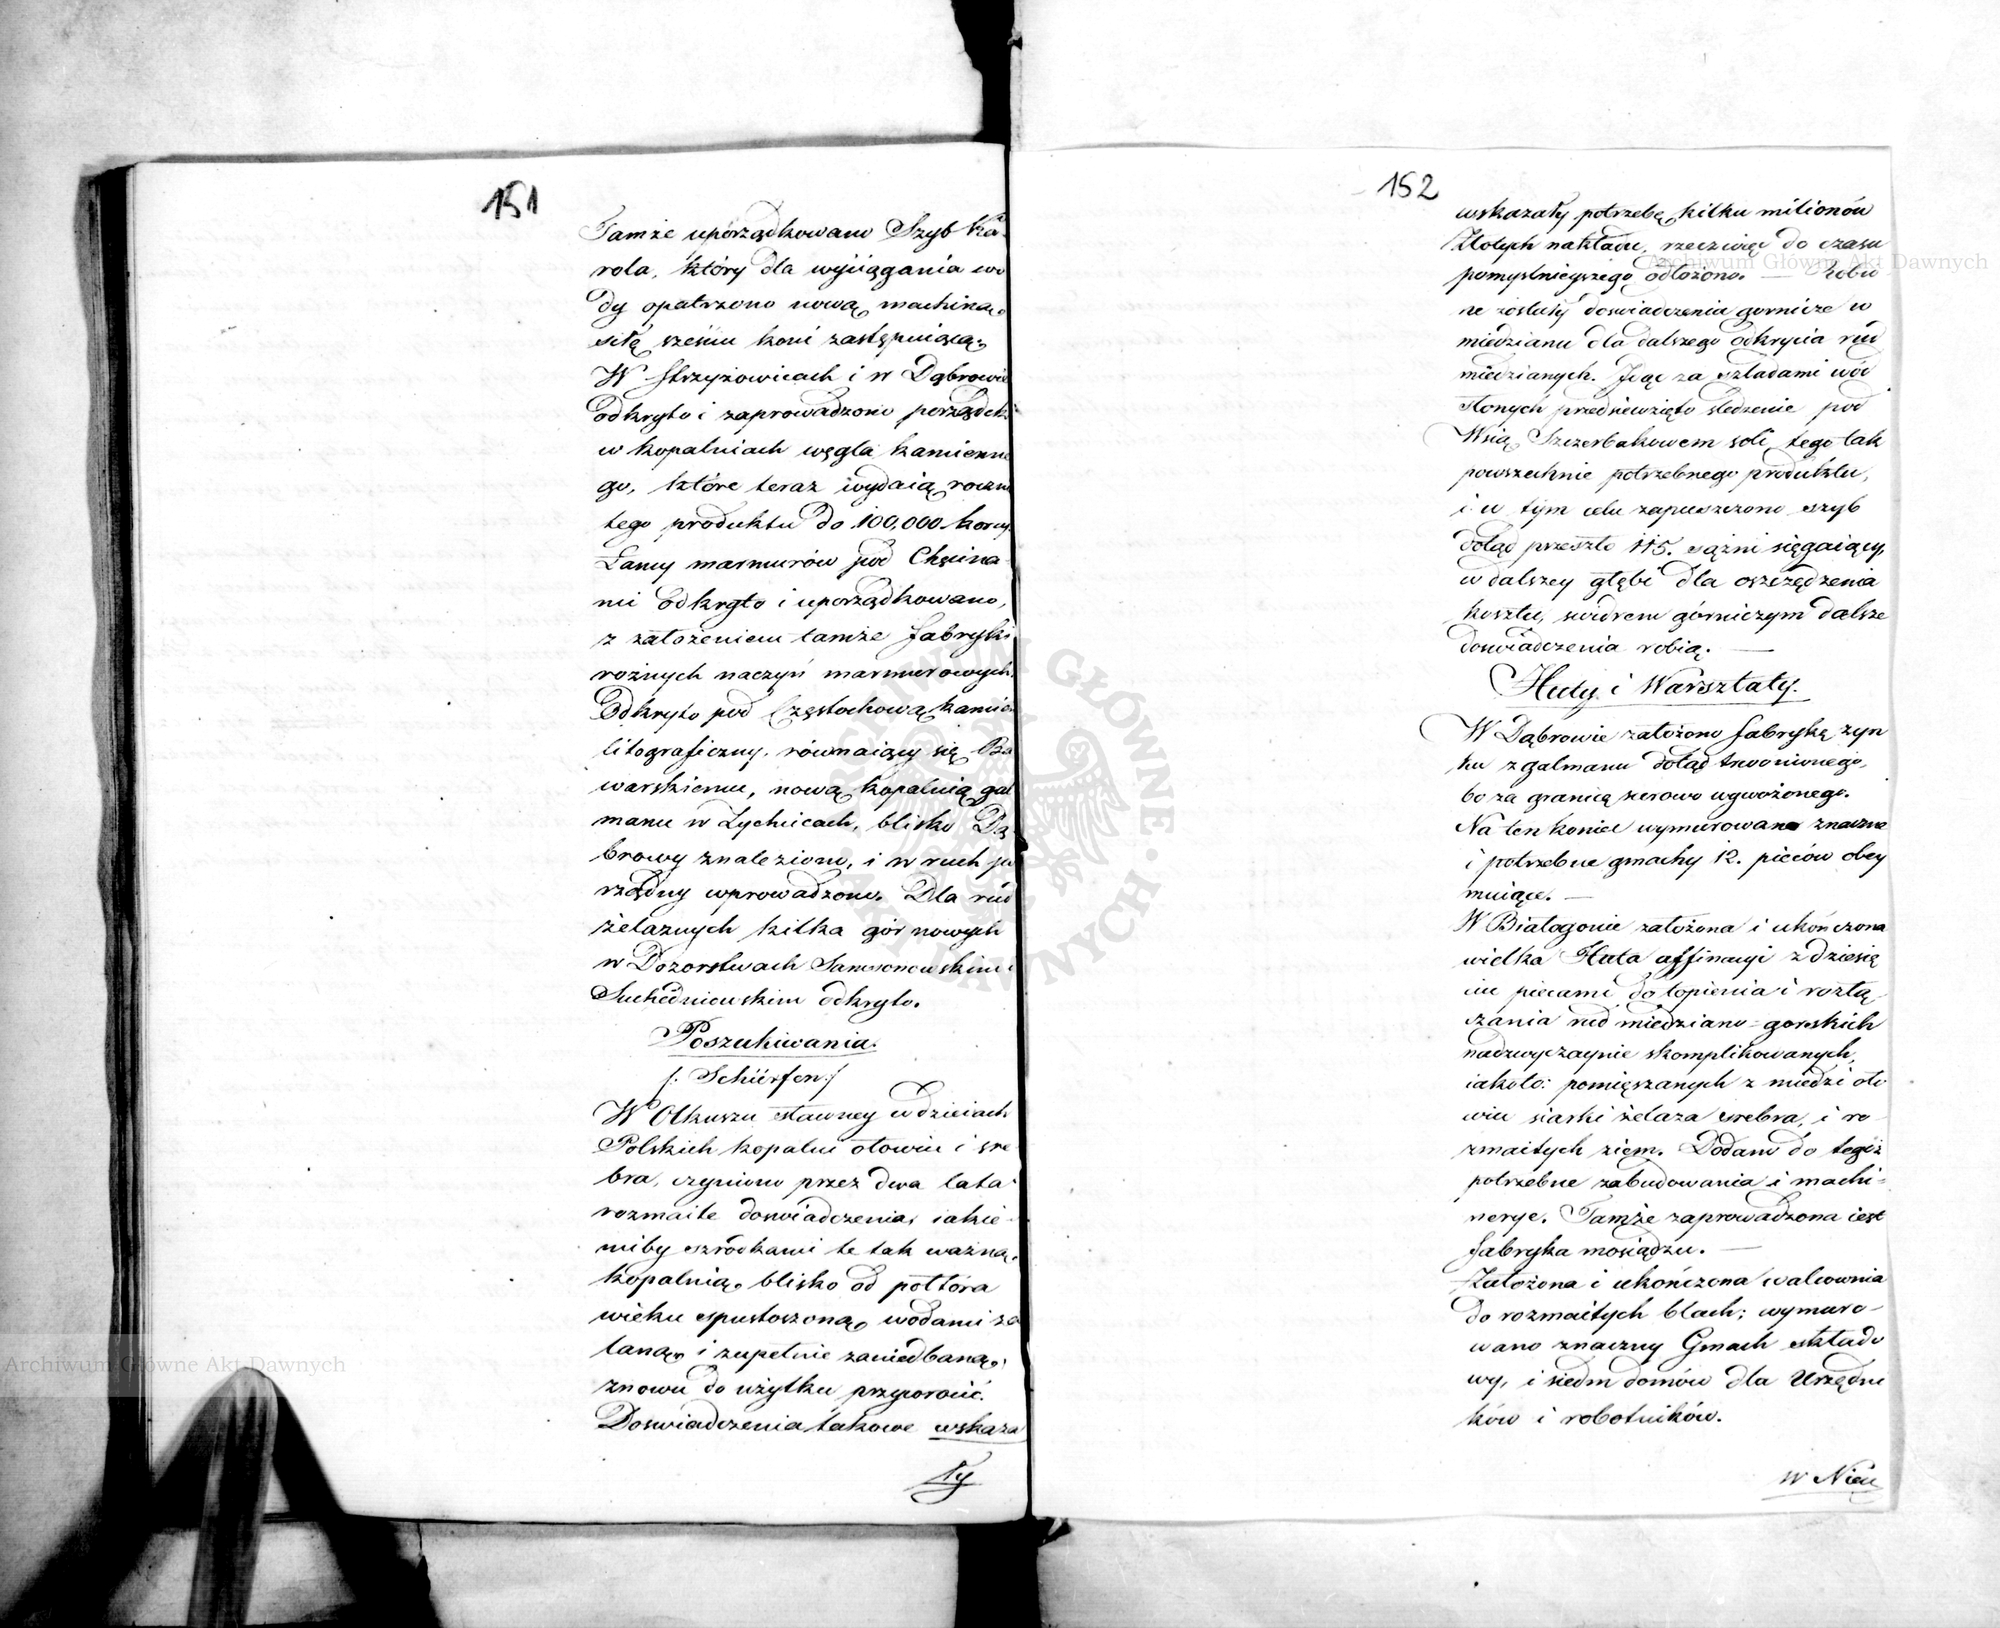 151
Tamże uporządkowano Szyb Ka-
rola, który dla wyciągania wo
dy opatrzono nową machiną,
siłę sześciu koni zastępuiącą.
W Strzyżowicach i w Dąbrowie
odkryto i zaprowadzono porządek
w kopalniach węgla kamienne
go, które teraz wydaią roczn
tego produktu do 100,000 korcy.
Łamy marmurów pod Chęcina
mi odkryto i uporządkowano,
z założeniem tamże fabryki
rożnych naczyń marmurowych.
Odkryto pod Częstochową kamień
litograficzny, równaiący się Ba
warskiemu, nową kopalnią gal
manu w Zychcicach, blisko Dą
browy znaleziono, i w ruch po
rządny wprowadzono. Dla rud
żelaznych kilka gór nowych
w Dozorstwach Samsonowskim i
Suchedniowskim odkryto.
Poszukiwania.
/: Schürfen :/
W Olkuszu sławney w dzieiach
Polskich kopalni ołowiu i sre
bra, czyniono przez dwa lata
rozmaite doswiadczenia, iakie-
miby szrodkami te tak ważną
kopalnią, blisko od półtora
wieku spustoszoną, wodami za
laną, i zupełnie zaniedbaną,
znowu do użytku przywrocić.
Doswiadczenia takowe wskaza
ły
152
wskazały potrzebę kilku milionów
Złotych nakładu, rzecz więc do czasu
pomyslnieyszego odłożono. — Robio
ne zostały doswiadczenia gornicze w
miedzianu dla dalszego odkrycia rud
miedzianych. Idąc za szladami wód
słonych przedsiewzięto sledzenie pod
Wsią Szczerbakowem soli, tego tak
powszechnie potrzebnego produktu,
i w tym celu zapuszczono szyb
dotąd przeszło 115. sążni sięgaiący,
w dalszey głębi dla oszczędzenia
kosztu, swidrem górniczym dalsze
doswiadczenia robią. —
Huty i Warsztaty.
W Dąbrowie założono fabrykę zyn
ku z galmanu dotąd trwonionego,
bo za granicą surowo wywożonego.
Na ten koniec wymurowano znaczne
i potrzebne gmachy 12. pieców obey
muiące. —
W Białogonie założona i ukończona
wielka Huta affinacyi z dziesię
ciu piecami do topienia i rozłą-
czania rud miedziano=gorskich
nadzwyczaynie skomplikowanych,
iakoto: pomięszanych z miedzi oło
wiu siarki żelaza srebra, i ro-
zmaitych ziem. Dodano do tegoż
potrzebne zabudowania i machi=
nerye. Tamże zaprowadzona iest
fabryka mosiądzu. —
Założona i ukończona walcownia
do rozmaitych blach; wymuro-
wano znaczny Gmach składo
wy, i siedm domów dla Urzędni
ków i robotników.
w Nie
Archiwum Główne Akt Dawnych
Archiwum Główne Akt Dawnych
ARCHIWUM GŁÓWNE AKT DAWNYCH